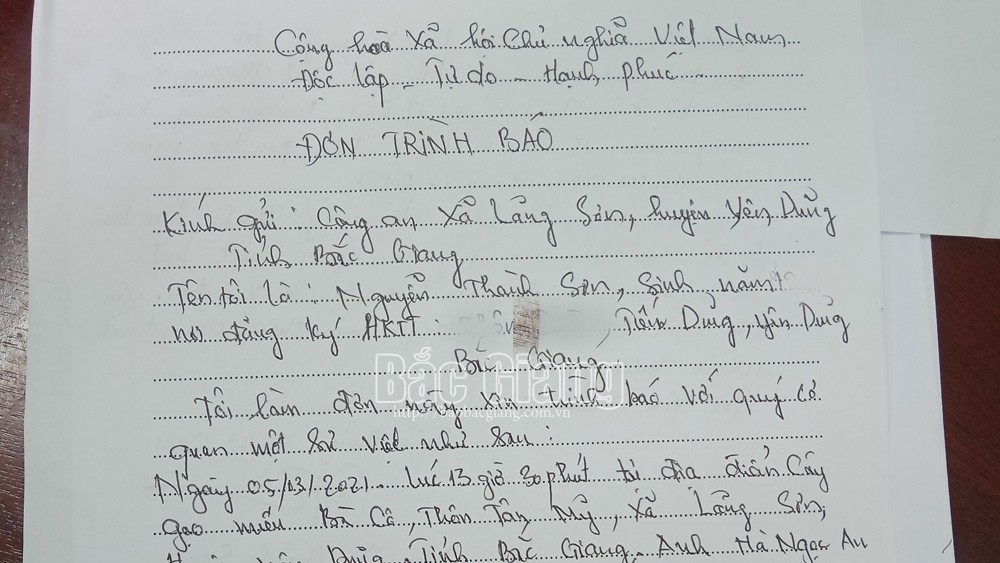 Cộng hoà Xã hội Chủ nghĩa Việt Nam
Độc lập - Tự do - Hạnh phúc
ĐƠN TRÌNH BÁO
Kính gửi: Công an Xã Lãng Sơn, huyện Yên Dũng
Tỉnh Bắc Giang
Tên tôi là: Nguyễn Thành Sơn, Sinh năm:
nơi đăng ký HKTT: Tiến Dũng, Yên Dũng
Bắc Giang
Bắc Giang
Tôi làm đơn này xin trình báo với quý cơ
http://baobacgiang.com.vn
quan một sự việc như sau:
Ngày 05/03/2021 lúc 13 giờ 30 phút tại địa điểm Cây
gạo miếu Bà Cô, Thôn Tân Mỹ, Xã Lãng Sơn,
Dũng, Tỉnh Bắc Giang. Anh Hà Ngọc Au